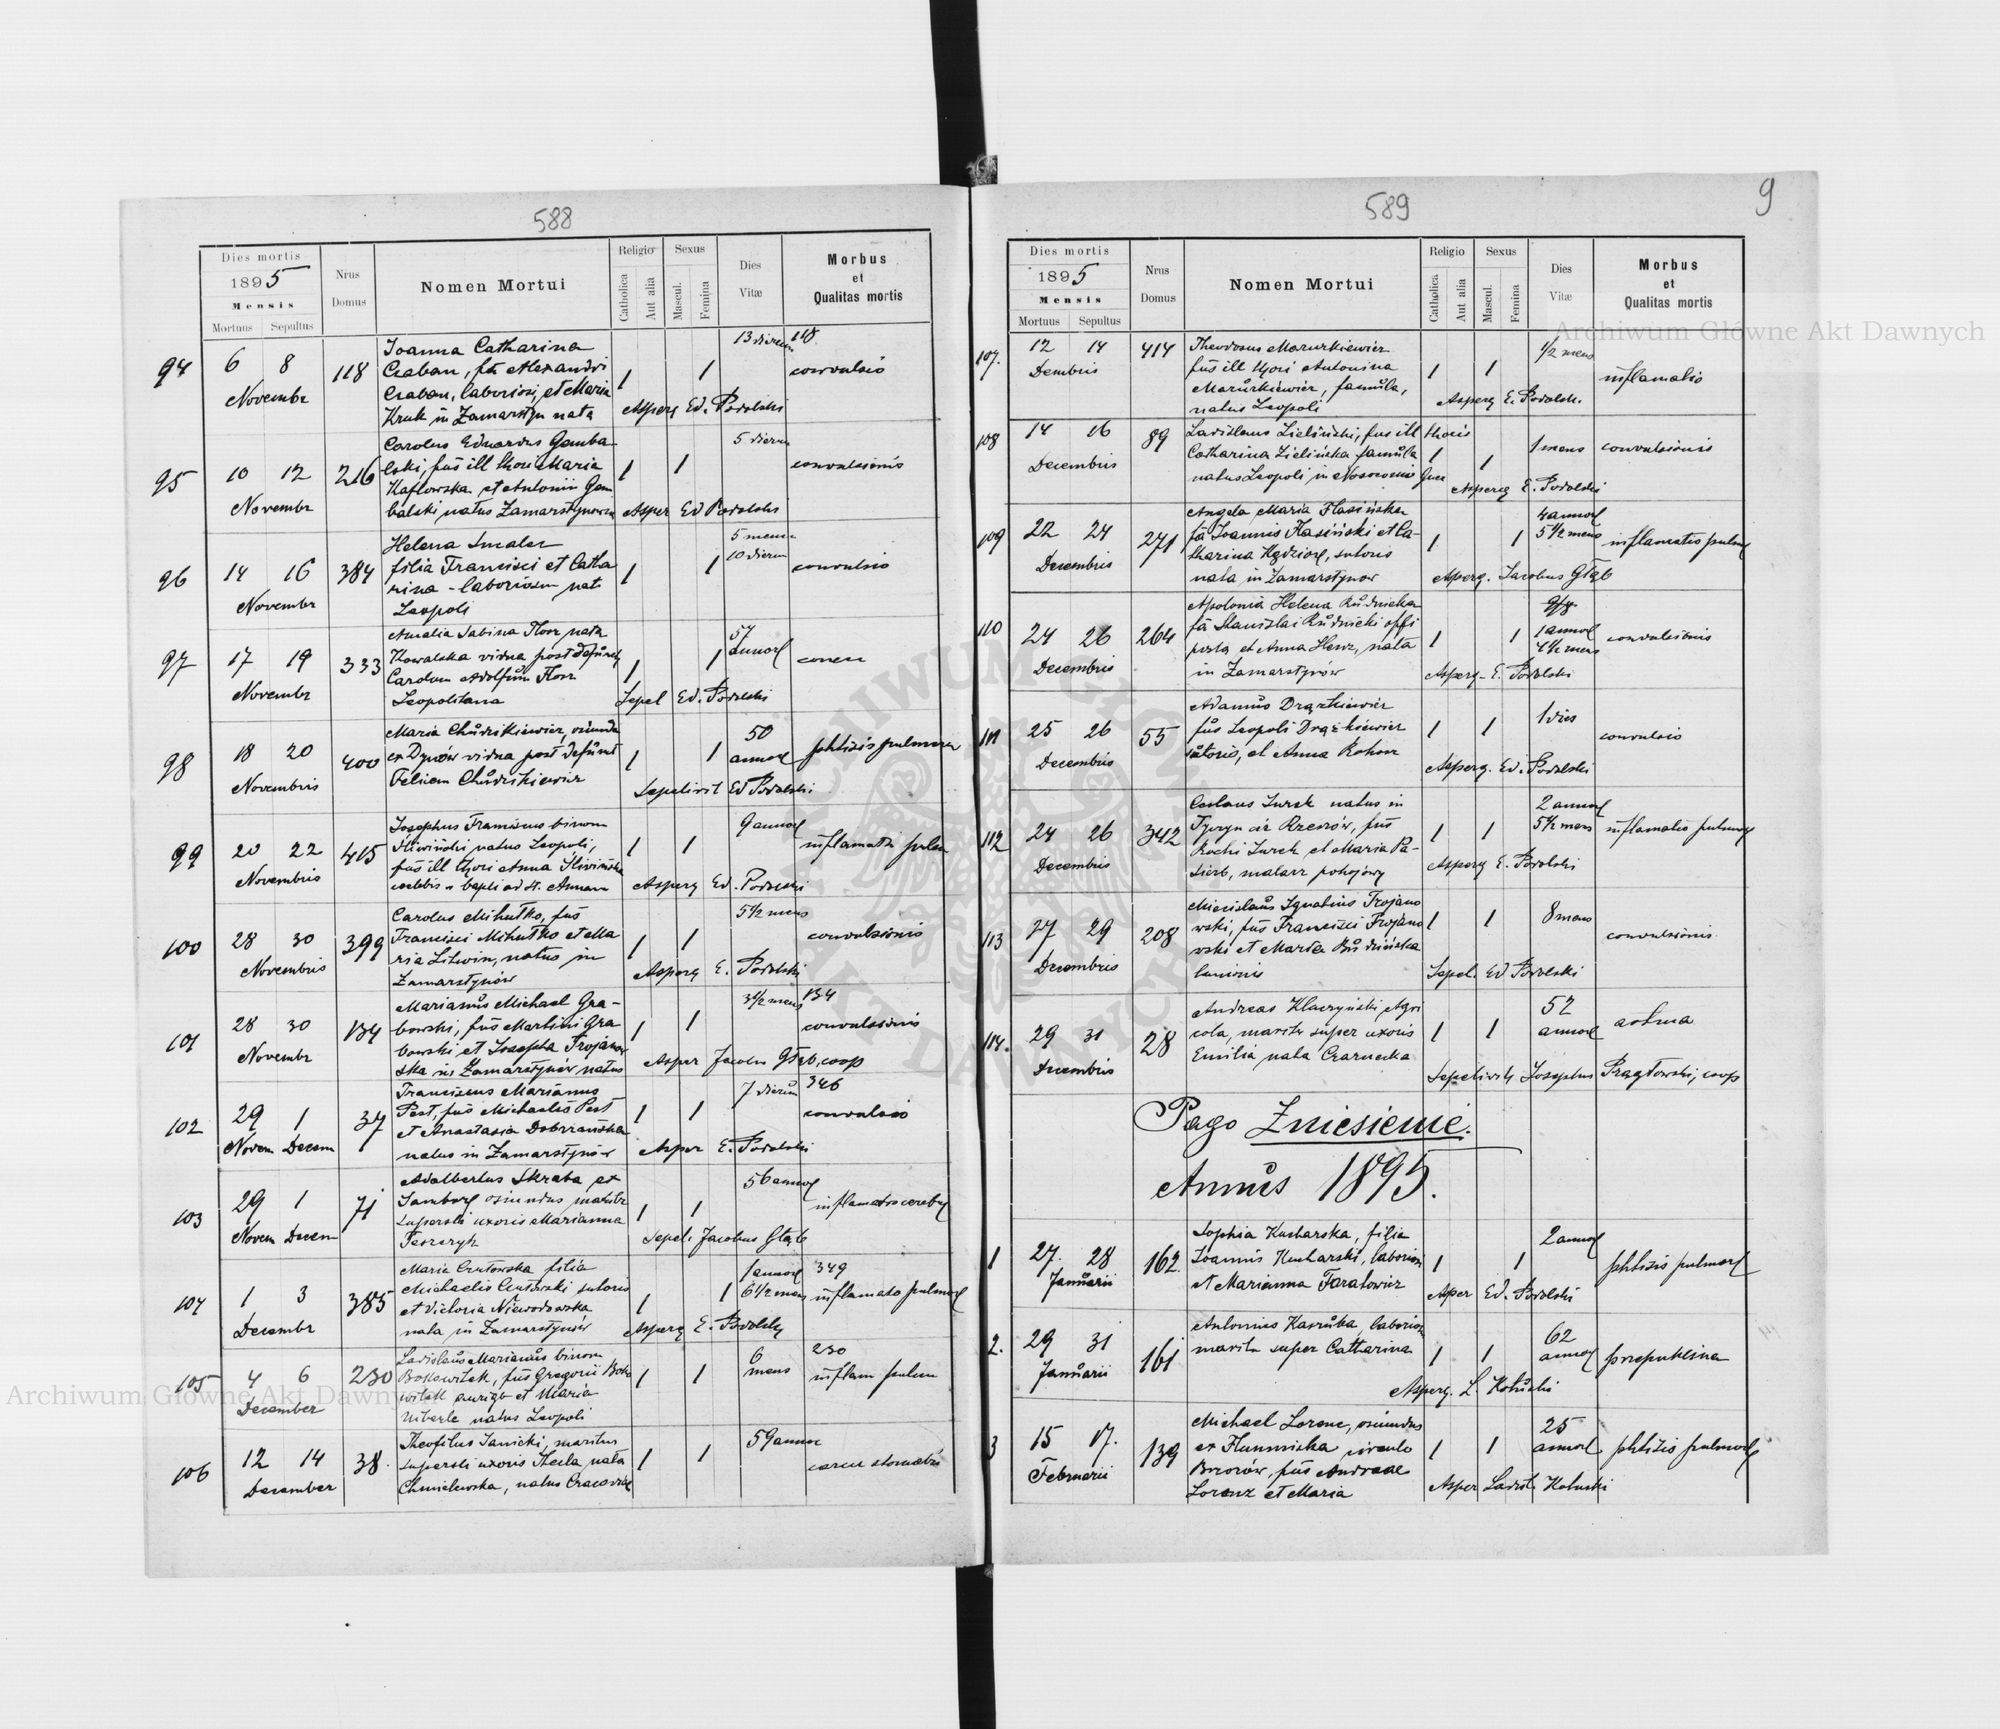 588
Dies mortis
1895
Mensis
Mortuus Sepultus
Nrus Domus
Nomen Mortui
Religio
Catholica
Aut alia
Sexus
Mascul.
Femina
Dies Vitæ
Morbus
et
Qualitas mortis
94 6 8 Novembr 118
Joanna Catharina
Craban, fa Alexandri
Craban, laboriosi, et Maria
Kruk in Zamarstyn nata
1 1 13 dierum 118 convulsio
Asperg Ed. Podolski
95 10 12 Novembr 216
Carolus Eduardus Gamba
lski, fus ill thori Maria
Kaflowska et Antonii Gam
balski natus Zamarstynow
1 1 5 dierum convulsionis
Asper Ed Podolski
96 14 16 Novembr 384
Helena
filia Francisci et Catha
rina - laboriosum nat
Leopoli
1 1 5 mens 10 dierum convulsio
97 17 19 Novembr 333
Amalia Sabina Florr nata
Kowalska vidua post defunct
Carolum Adolfum Florr
Leopolitana
1 1 57 annor
Sepel Ed. Podolski
98 18 20 Novembris 400
Maria Chudzikiewicz, oriunda
ex Dynów vidua post defunct
Felicem Chudzikiewicz
1 1 50 annor phtisis pulmon
Sepelivit Ed Podolski
99 20 22 Novembris 415
Josephus Franciscus binom
Sliwiński natus Leopoli,
fus ill thori Anna Sliwińska
caelebs - bapti ad St. Annam
1 1 9 annor inflamatio pulm
Asperg Ed. Podolski
100 28 30 Novembris 399
Carolus Mihutko, fus
Francisci Mihutko et Ma
ria Litwin, natus in
Zamarstynów
1 1 5 1/2 mens convulsionis
Asperg E. Podolski
101 28 30 Novembr 134
Marianus Michael Gra-
bowski, fus Martini Gra
bowski, et Josepha Trojanow
ska in Zamarstynów natus
1 1 3 1/2 mens 134 convulsionis
Asper Jacobus Głąb, coop
102 29 1 Novem Decem 37
Franciscus Marianus
Pest, fus Michaelis Pest
et Anastasia Dobrzańska
natus in Zamarstynów
1 1 7 dierum 346 convulsio
Asper E. Podolski
103 29 1 Novem Decem 71
Adalbertus Skraba ex
Jamborg oriundus maritus
superst uxoris Marianna
Teszczyk
1 1 56 annor inflamatio cerebry
Sepel. Jacobus Głąb
104 1 3 Decembr 385
Maria Czutowska filia
Michaelis Czutowski sutoris
et Victoria Niewodowska
nata in Zamarstynów
1 1 1 annor 6 1/2 mens 349 inflamatio pulmor
Asperg E. Podolsky
105 4 6 December 230
Ladislaus Marianus binom
fus Gregorii
et Maria
natus Leopoli
1 1 6 mens 230 inflam pulm
106 12 14 December 38
Theofilus Janicki, maritus
supersti uxoris Thecla nata
Chmielewska, natus Cracoviae
1 1 59 annor cancer stomachi
589
9
Dies mortis
1895
Mensis
Mortuus Sepultus
Nrus Domus
Nomen Mortui
Religio
Catholica
Aut alia
Sexus
Mascul.
Femina
Dies Vitæ
Morbus
et
Qualitas mortis
107. 12 14 Dembris 414
Theodosus Mazurkiewicz
fus ill thori Antonina
Mazurkiewicz, famula,
natus Leopoli
1 1 1/2 mens inflamatio
Asperg E. Podolski
108 14 16 Decembris 89
Ladislaus Zieliński, fus ill thoris
Catharina Zielińska famula
natus Leopoli in
1 1 1 mens convulsionis
Asperg E. Podolski
109 22 24 Decembris 271
Angela Maria Flasińska
fa Joannis Flasiński et Ca-
tharina Kędzior, sutoris
nata in Zamarstynow
1 1 4 annor 5 1/2 mens inflamatio pulm
Asperg. Jacobus Głąb
110 24 26 Decembris 264
Apolonia Helena Rudnicka
fa Stanislai Rudnicki
et Anna Herz, nata
in Zamarstynów
1 1 1 annor 4 1/2 mens convulsionis
Asperg - E. Podolski
111 25 26 Decembris 55
Adamus Drążkiewicz
fus Leopoli Drążkiewicz
sutoris, et Anna Kohon
1 1 1 dies convulsio
Asperg. Ed. Podolski
112 24 26 Decembris 342
Ceslaus Turek natus in
Tyczyn cir Rzeszów, fus
Rochi Turek et Maria Pa-
sierb, malarz pokojowy
1 1 2 annor 5 1/2 mens inflamatio pulmon
Asperg E. Podolski
113 27 29 Decembris 208
Miecislaus Ignatius Trojano
wski, fus Francisci Trojano
wski et Maria Budzińska
lanionis
1 1 8 mens convulsionis
Sepel. Ed Podolski
114. 29 31 Decembris 28
Andreas Klaczyński, Agri
cola, maritu super uxoris
Emilia nata Czarnecka
1 1 52 annor astma
Sepelivit Josephus Prągłowski, coop
Pago Zniesienie.
Annus 1895.
1 27. 28 Januarii 162.
Sophia Kucharska, filia
Joannis Kucharski, laborios
et Marianna Taratowicz
1 1 2 annor phtisis pulmor
Asper Ed. Podolski
2. 29 31 Januarii 161
Antonius Kaszuba, laborios
maritu super Catharina
1 1 62 annor przepuklina
Asperg. L. Kotulski
3 15 17. Februarii 139
Michael Lorenc, oriundus
ex Humniska circulo
Brzozów, fus Andreae
Lorenz et Maria
1 1 25 annor phtisis pulmon
Asper Ladisl. Kotulski
Archiwum Główne Akt Dawnych
Archiwum Główne Akt Dawnych